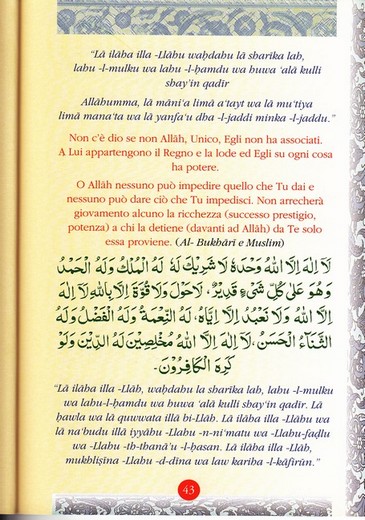 “Lâ ilâha illa -Llâhu waḥdahu lâ sharîka lah,
lahu -l-mulku wa lahu -l-ḥamdu wa huwa ‘alâ kulli
shay’in qadîr
Allâhumma, lâ mâni‘a limâ a‘tayt wa lâ mu‘tiya
limâ mana‘ta wa lâ yanfa‘u dha -l-jaddi minka -l-jaddu.”
Non c’è dio se non Allâh, Unico, Egli non ha associati.
A Lui appartengono il Regno e la lode ed Egli su ogni cosa
ha potere.
O Allâh nessuno può impedire quello che Tu dai e
nessuno può dare ciò che Tu impedisci. Non arrecherà
giovamento alcuno la ricchezza (successo prestigio,
potenza) a chi la detiene (davanti ad Allâh) da Te solo
essa proviene. (Al- Bukhârî e Muslim)
لَا إِلَهَ إِلَّا اللهُ وَحْدَهُ لَا شَرِيْكَ لَهُ لَهُ الْمُلْكُ وَلَهُ الْحَمْدُ
وَهُوَ عَلَى كُلِّ شَيْءٍ قَدِيْرٌ، لَاحَوْلَ وَلَا قُوَّةَ إِلَّا بِاللهِ لَا إِلَهَ
إِلَّا اللهُ وَلَا نَعْبُدُ إِلَّا إِيَّاهُ، لَهُ النِّعْمَةُ وَلَهُ الْفَضْلُ وَلَهُ
الثَّنَاءُ الْحَسَنُ، لَا إِلَهَ إِلَّا اللهُ مُخْلِصِيْنَ لَهُ الدِّيْنَ وَلَوْ
كَرِهَ الْكَافِرُوْنَ.
“Lâ ilâha illa -Llâh, waḥdahu la sharîka lah, lahu -l-mulku
wa lahu-l-ḥamdu wa huwa ‘alâ kulli shay’in qadîr. Lâ
ḥawla wa lâ quwwata illâ bi-Llâh. Lâ ilâha illa -Llâhu wa
lâ na‘budu illâ iyyâhu -Llahu -n-ni‘matu wa -Llahu-faḍlu
wa -Llahu -th-thanâ’u -l-ḥasan. Lâ ilâha illa -Llâh,
mukhliṣîna -Llahu -d-dîna wa law kariha -l-kâfirûn.”
43